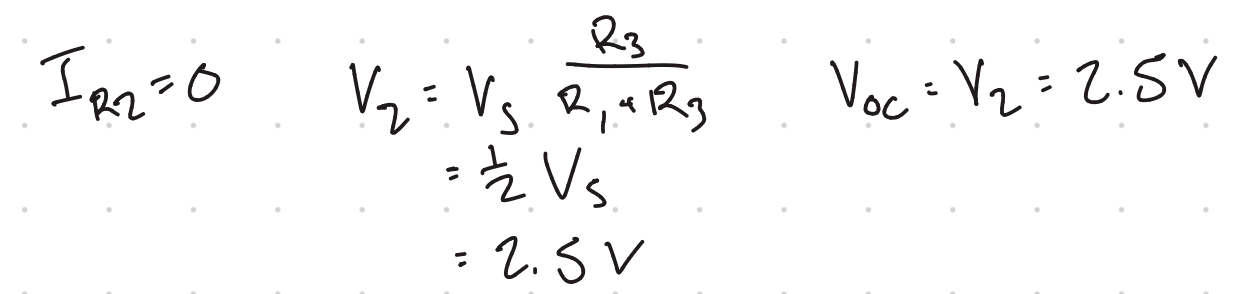 I_R2 = 0
V_2 = V_s R_3 / (R_1 + R_3)
= 1/2 V_s
= 2.5 V
V_oc = V_2 = 2.5 V